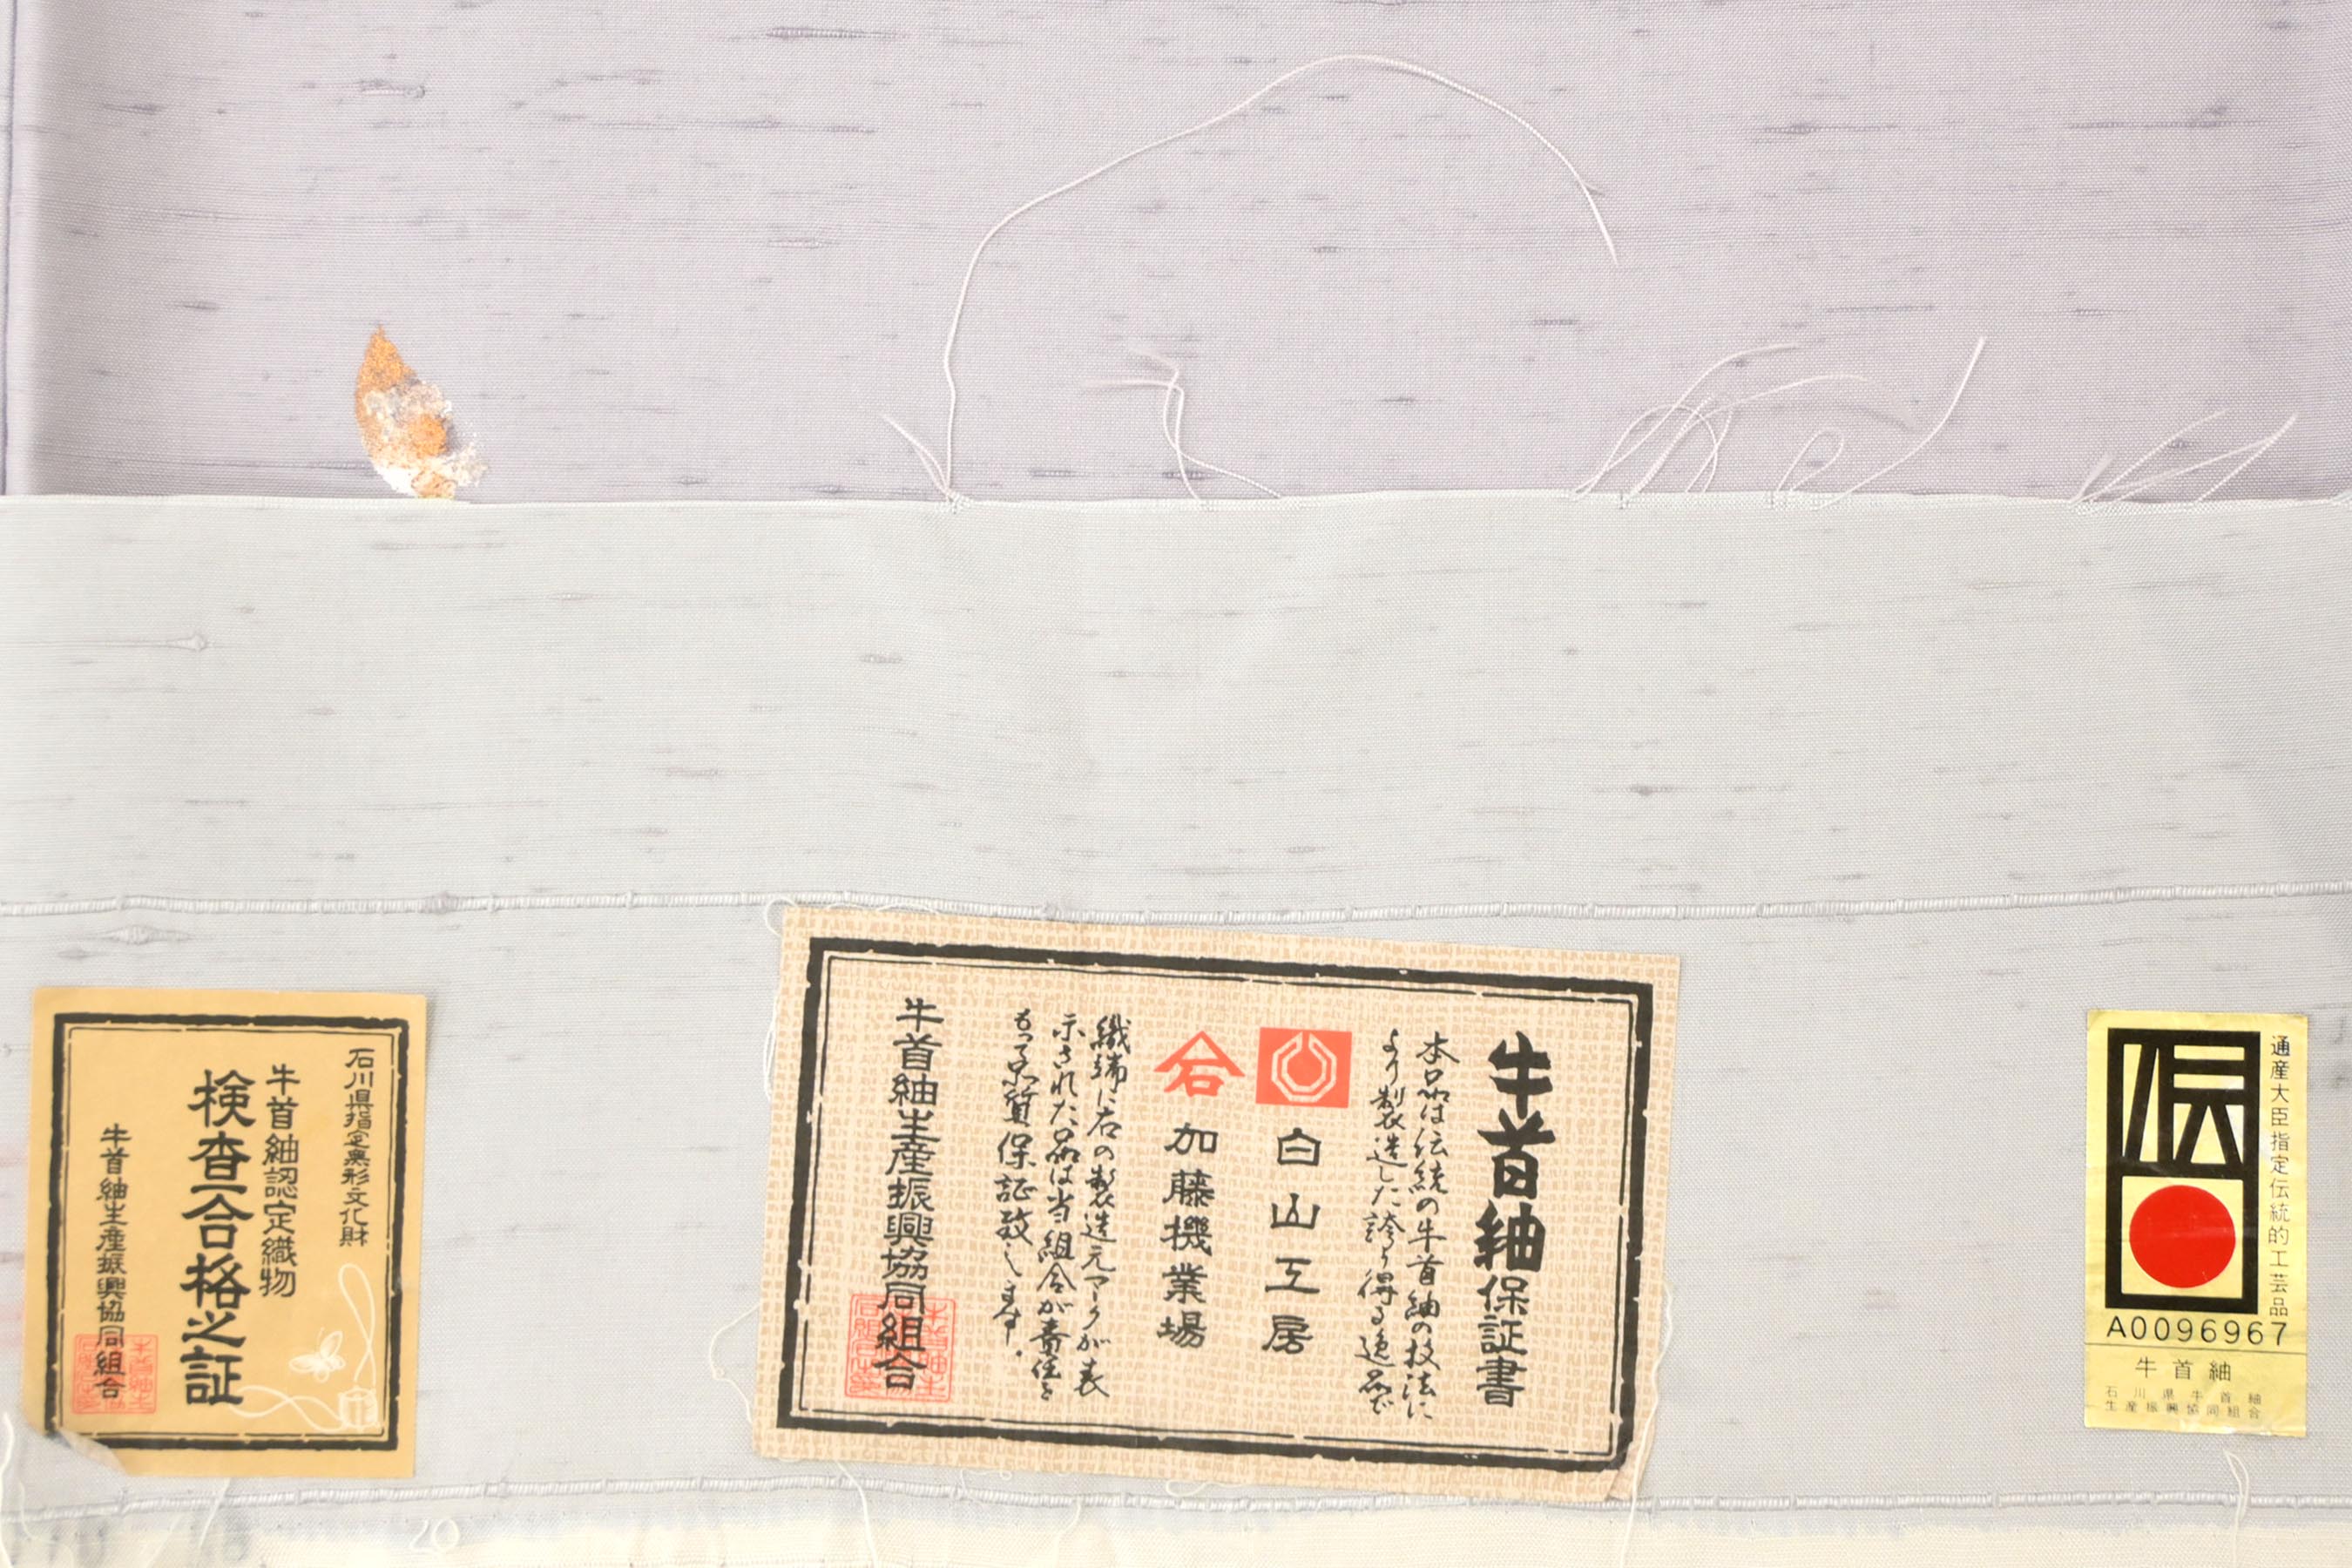 石川県指定無形文化財
牛首紬認定織物
検査合格之証
牛首紬生産振興協同組合
牛首紬保証書
本品は伝統の牛首紬の技法に
より製造した誇り得る逸品で
白山工房
加藤機業場
織端に右の製造元マークが表
示された品は当組合が責任を
もって品質保証致します。
牛首紬生産振興協同組合
通産大臣指定伝統的工芸品
伝
A0096967
牛首紬
石川県牛首紬
生産振興協同組合
20